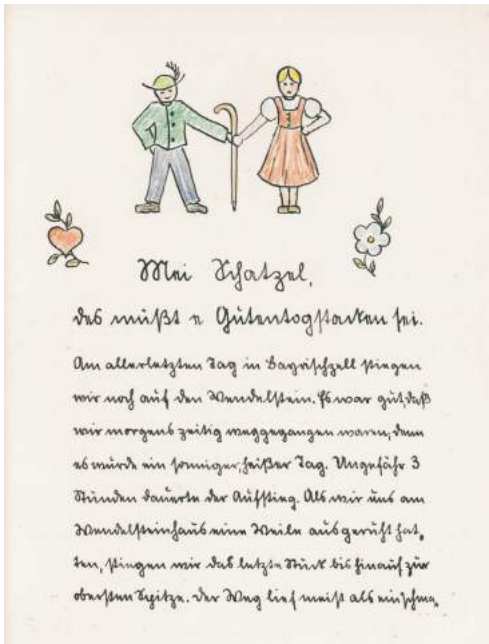 Mei Schatzel,
des müßt e Gutentogstecken sei.
Am allerletzten Tag in Bayrischzell stiegen
wir noch auf den Wendelstein. Es war gut, daß
wir morgens zeitig weggegangen waren, denn
es wurde ein sonniger, heißer Tag. Ungefähr 3
Stunden dauerte der Aufstieg. Als wir uns am
Wendelsteinhaus eine Weile ausgeruht hat=
ten, stiegen wir das letzte Stück bis hinauf zur
obersten Spitze. Der Weg lief meist als ein schma=